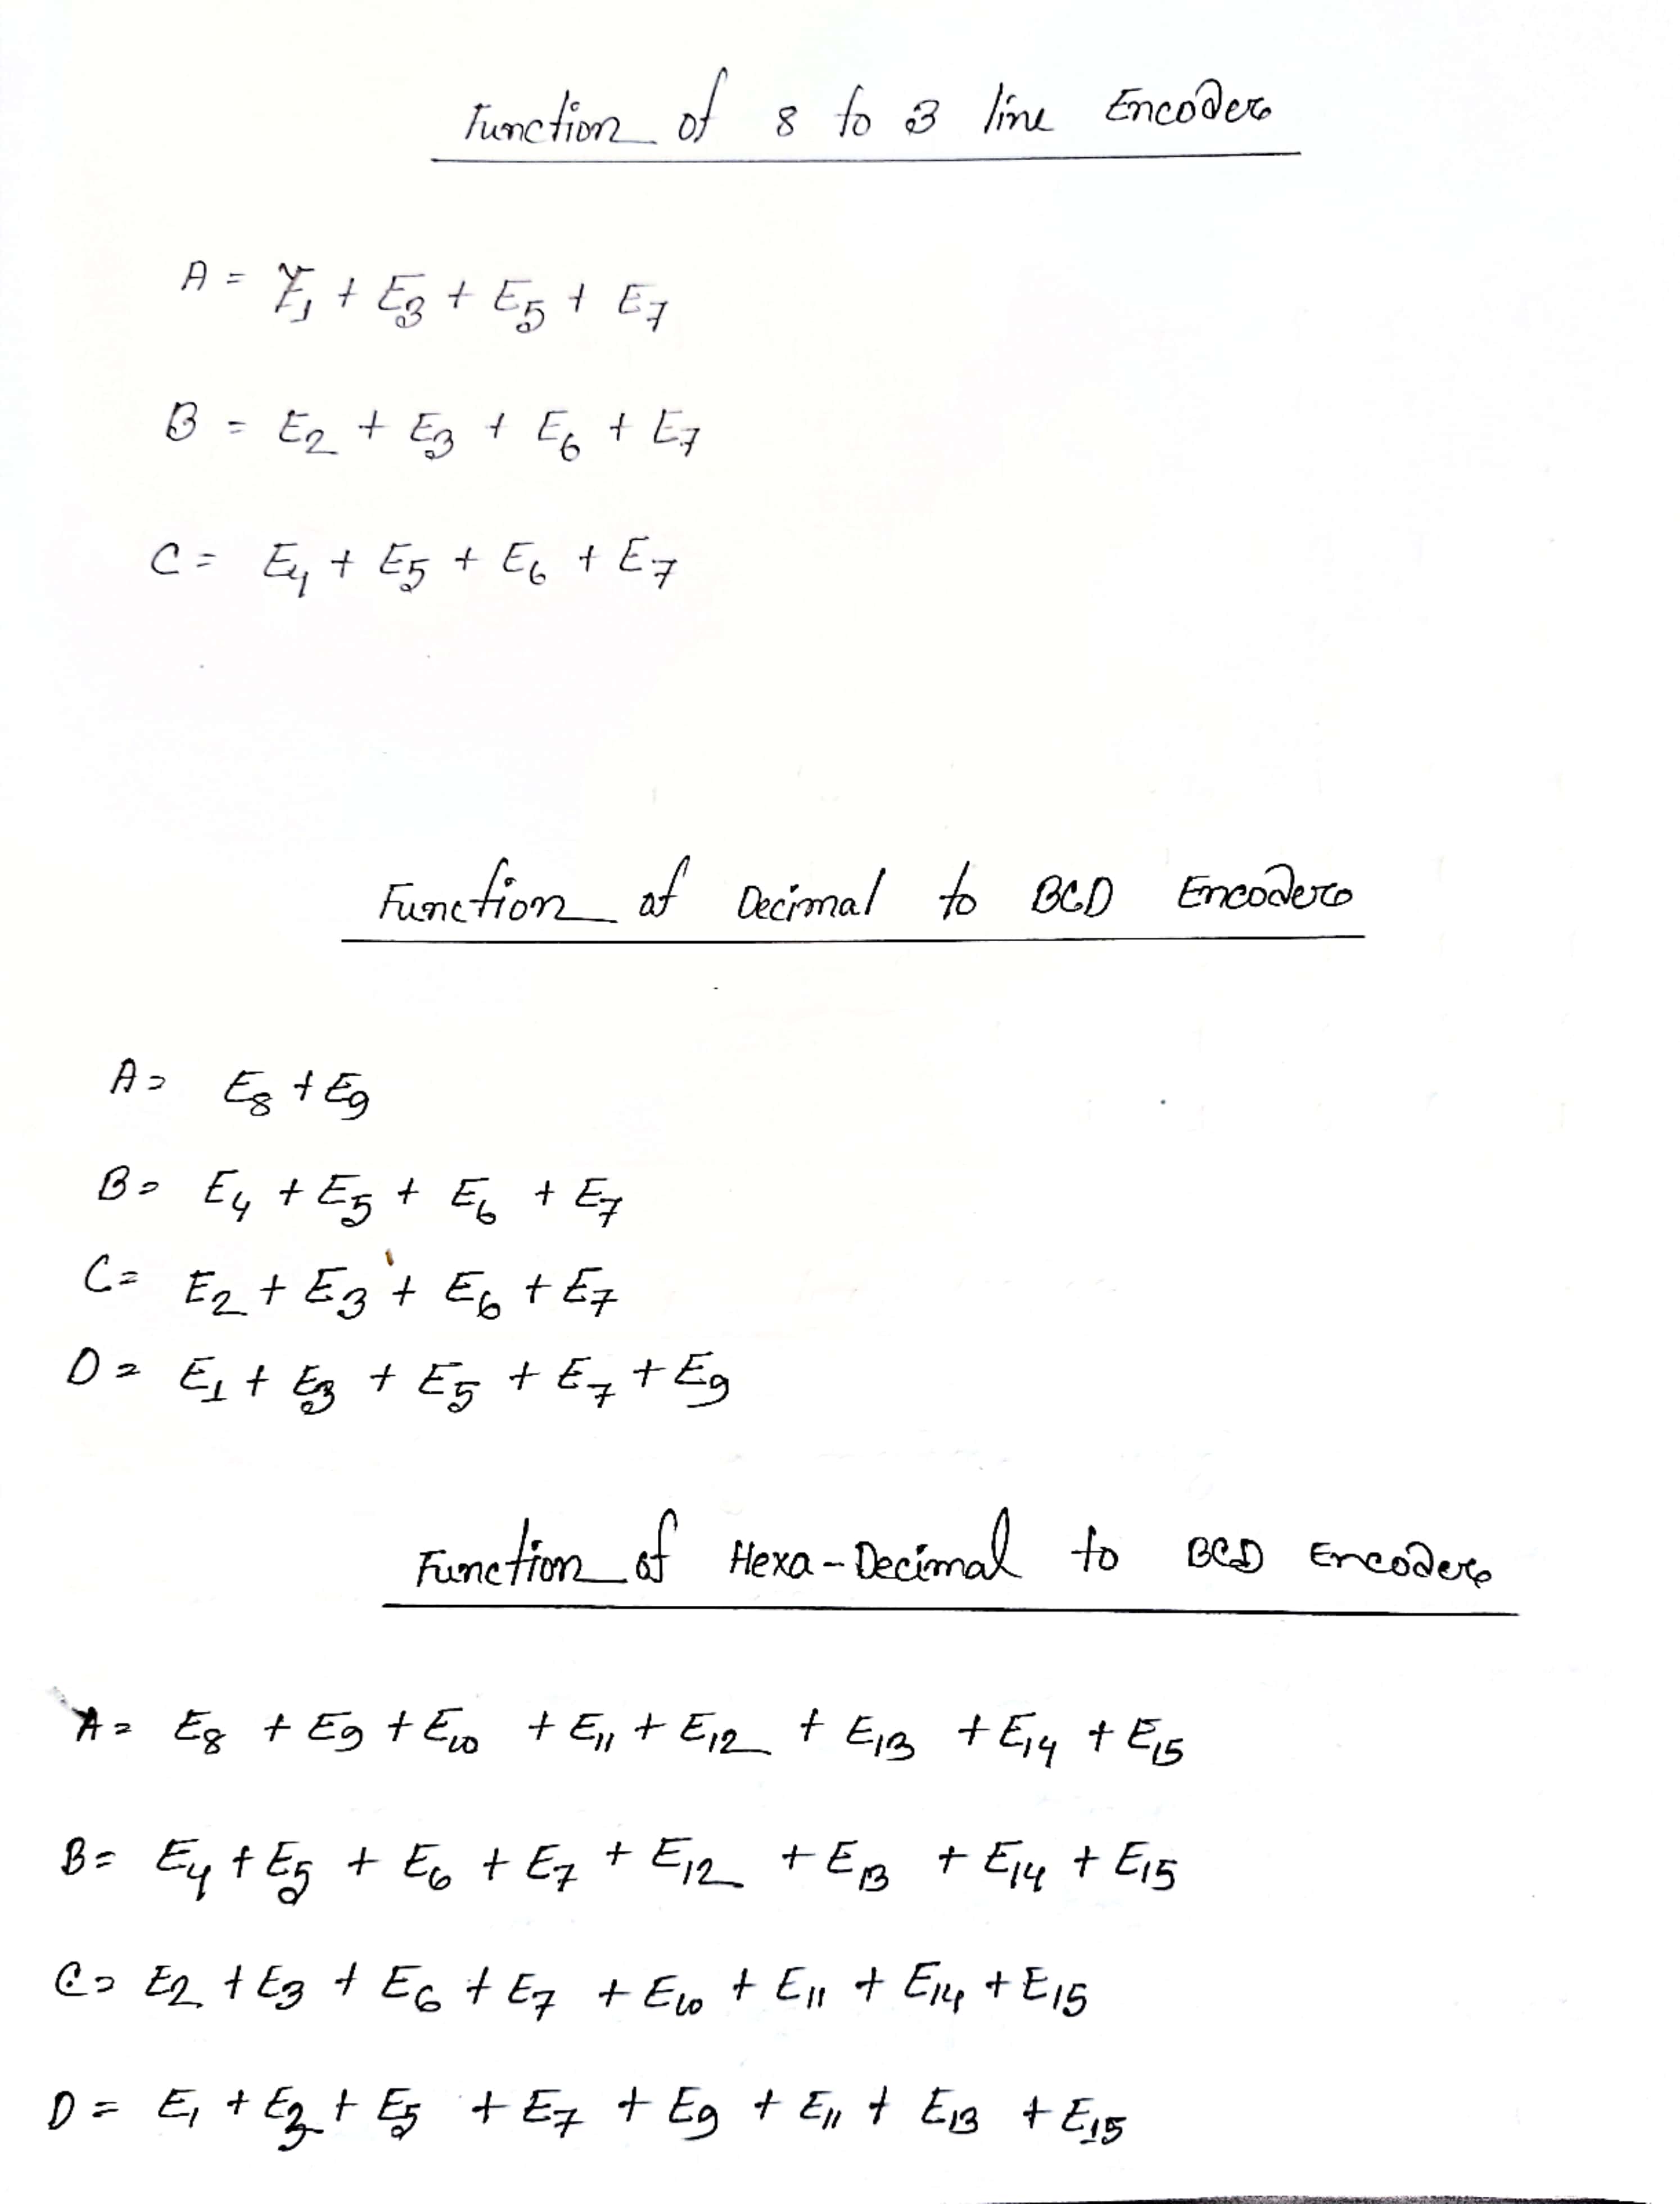 Function of 8 to 3 line Encoder
A = E₁ + E₃ + E₅ + E₇
B = E₂ + E₃ + E₆ + E₇
C = E₄ + E₅ + E₆ + E₇
Function of Decimal to BCD Encoder
A = E₈ + E₉
B = E₄ + E₅ + E₆ + E₇
C = E₂ + E₃ + E₆ + E₇
D = E₁ + E₃ + E₅ + E₇ + E₉
Function of Hexa-Decimal to BCD Encoder
A = E₈ + E₉ + E₁₀ + E₁₁ + E₁₂ + E₁₃ + E₁₄ + E₁₅
B = E₄ + E₅ + E₆ + E₇ + E₁₂ + E₁₃ + E₁₄ + E₁₅
C = E₂ + E₃ + E₆ + E₇ + E₁₀ + E₁₁ + E₁₄ + E₁₅
D = E₁ + E₃ + E₅ + E₇ + E₉ + E₁₁ + E₁₃ + E₁₅